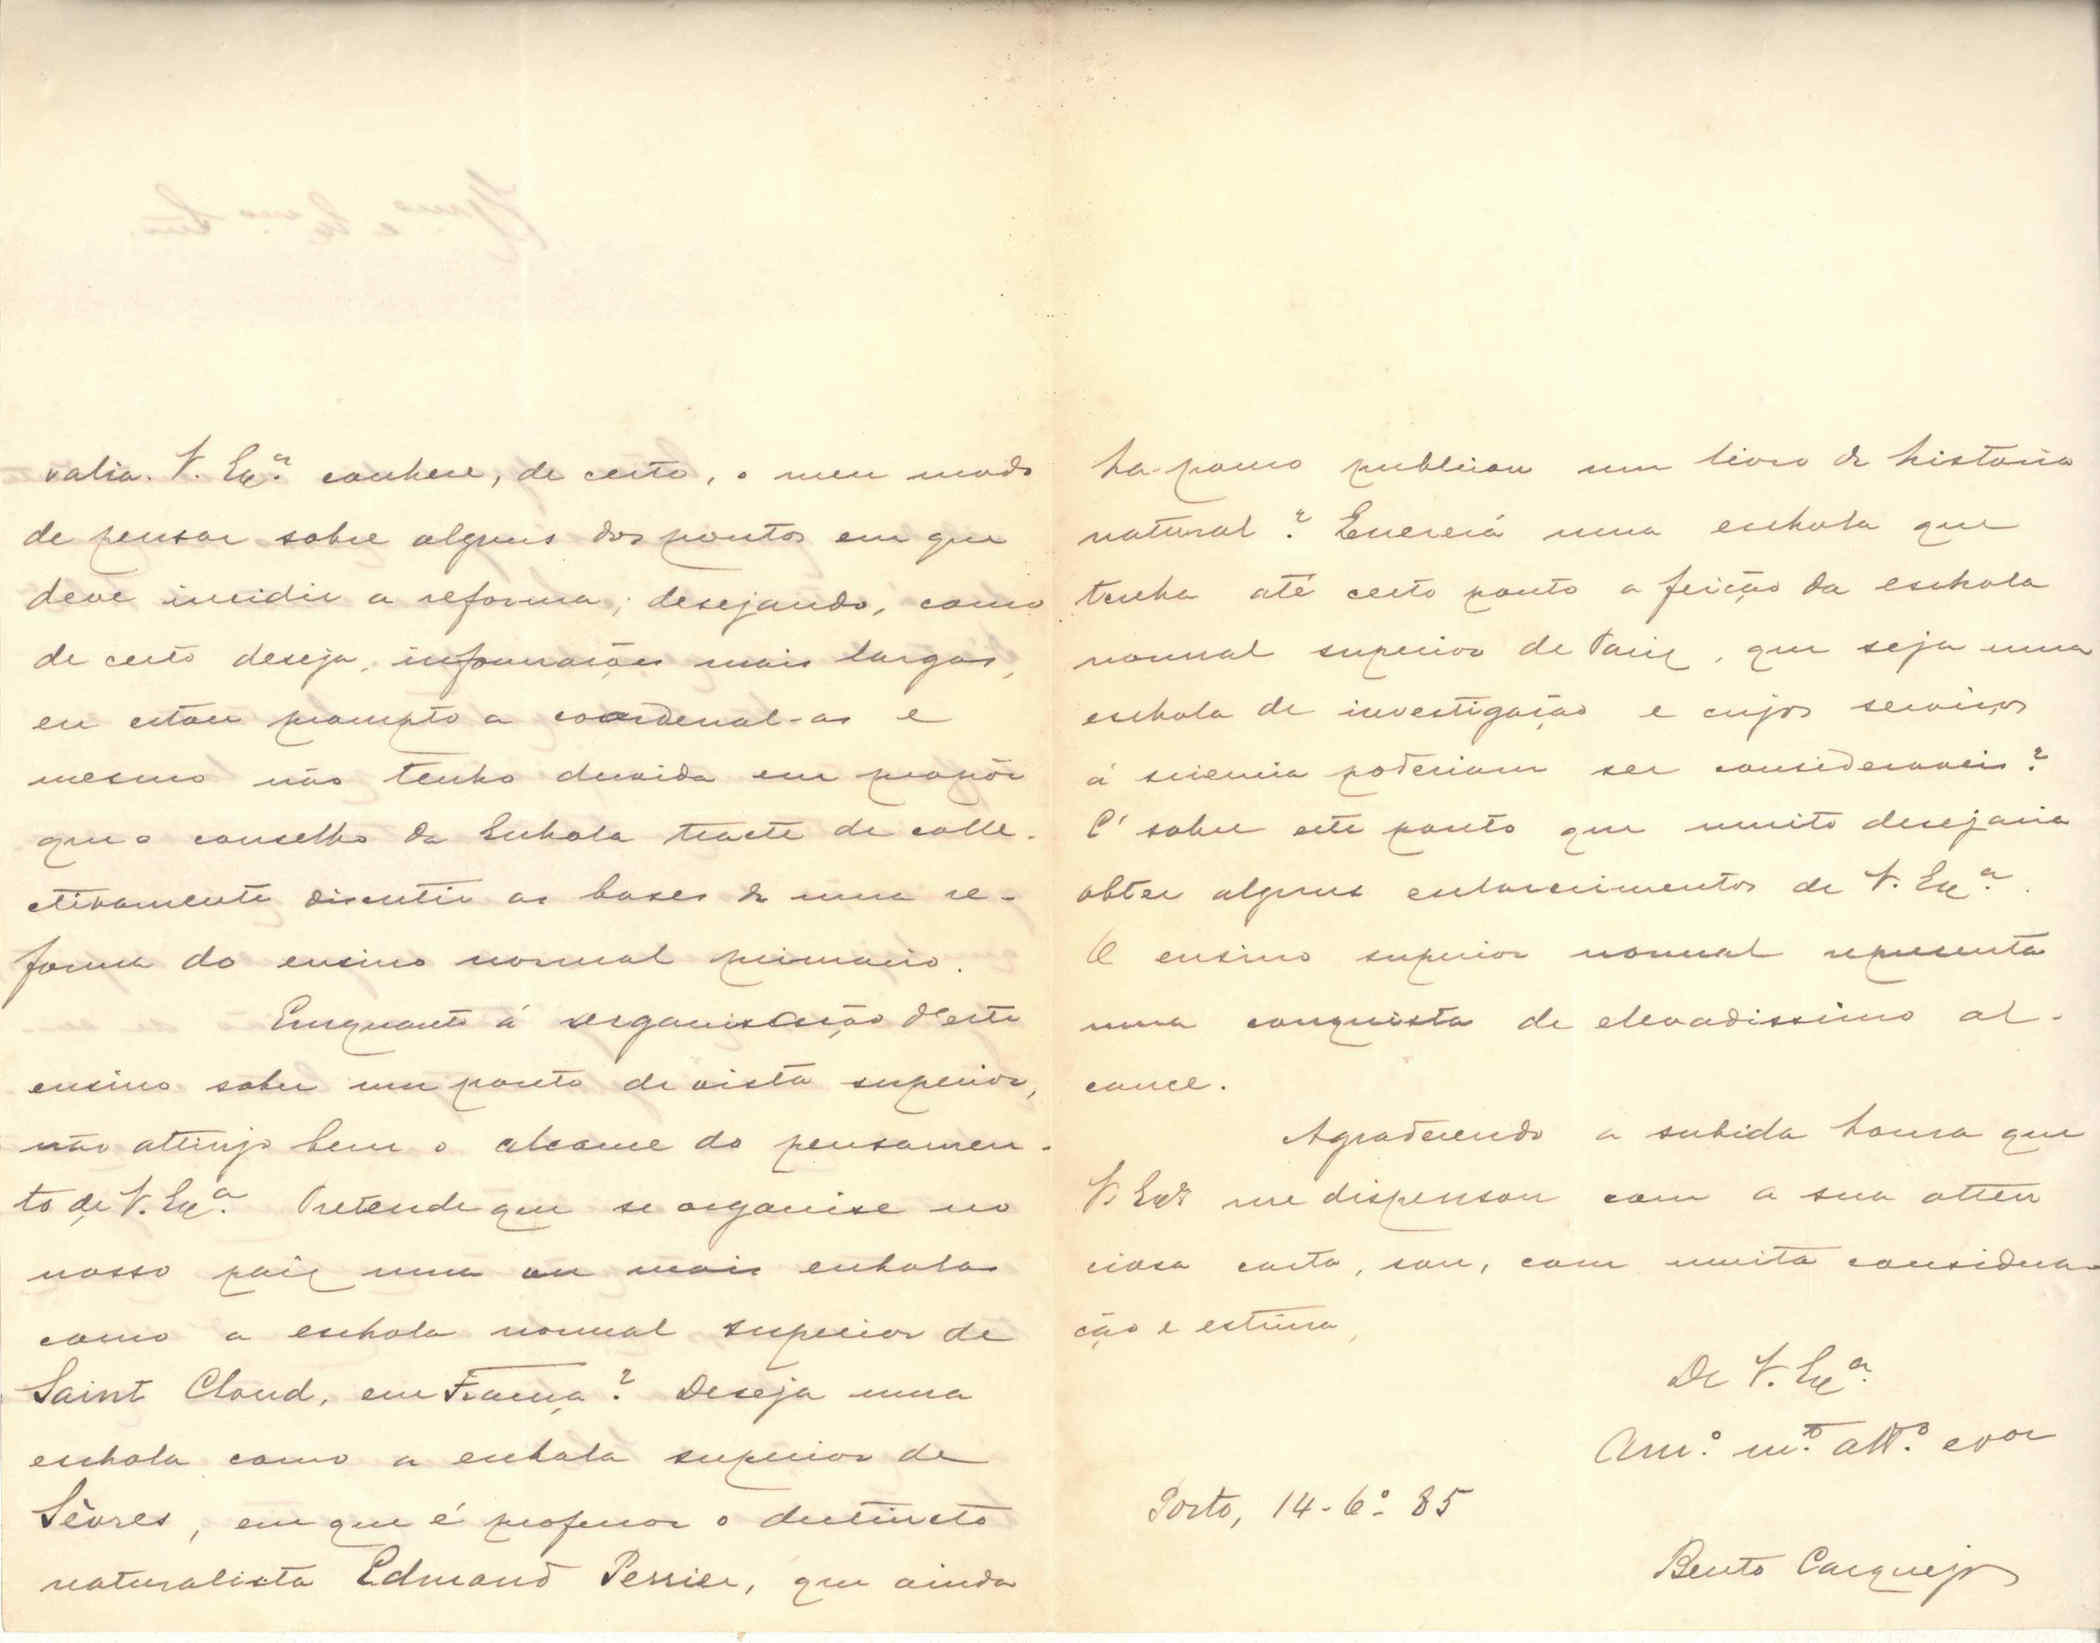 valia. V. Ex.ª conhece, de certo, o meu modo
de pensar sobre alguns dos pontos em que
deve incidir a reforma; desejando, como
de certo deseja, informações mais largas,
eu estou prompto a coordenal-as e
mesmo não tenho duvida em propôr
que o conselho da Eschola tracte de colle-
ctivamente discutir as bases de uma re-
forma do ensino normal primario.
Emquanto á organisação d'este
ensino sobre um ponto de vista superior,
não attinjo bem o alcance do pensamen-
to de V. Ex.ª Pretende que se organise no
nosso paiz uma ou mais escholas
como a eschola normal superior de
Saint Cloud, em França? Deseja uma
eschola como a eschola superior de
Sèvres, em que é professor o distincto
naturalista Edmond Perrier, que ainda
ha pouco publicou um livro de historia
natural? Quererá uma eschola que
tenha até certo ponto a feição da eschola
normal superior de Pariz, que seja uma
eschola de investigação e cujos serviços
á sciencia poderiam ser consideraveis?
E' sobre este ponto que muito desejaria
obter alguns esclarecimentos de V. Ex.ª.
O ensino superior normal representa
uma conquista de elevadissimo al-
cance.
Agradecendo a subida honra que
V. Ex.ª me dispensou com a sua atten
ciosa carta, sou, com muita considera-
ção e estima,
De V. Ex.ª
Am.º m.to att.º e vor
Porto, 14-6.º 85
Bento Carqueja